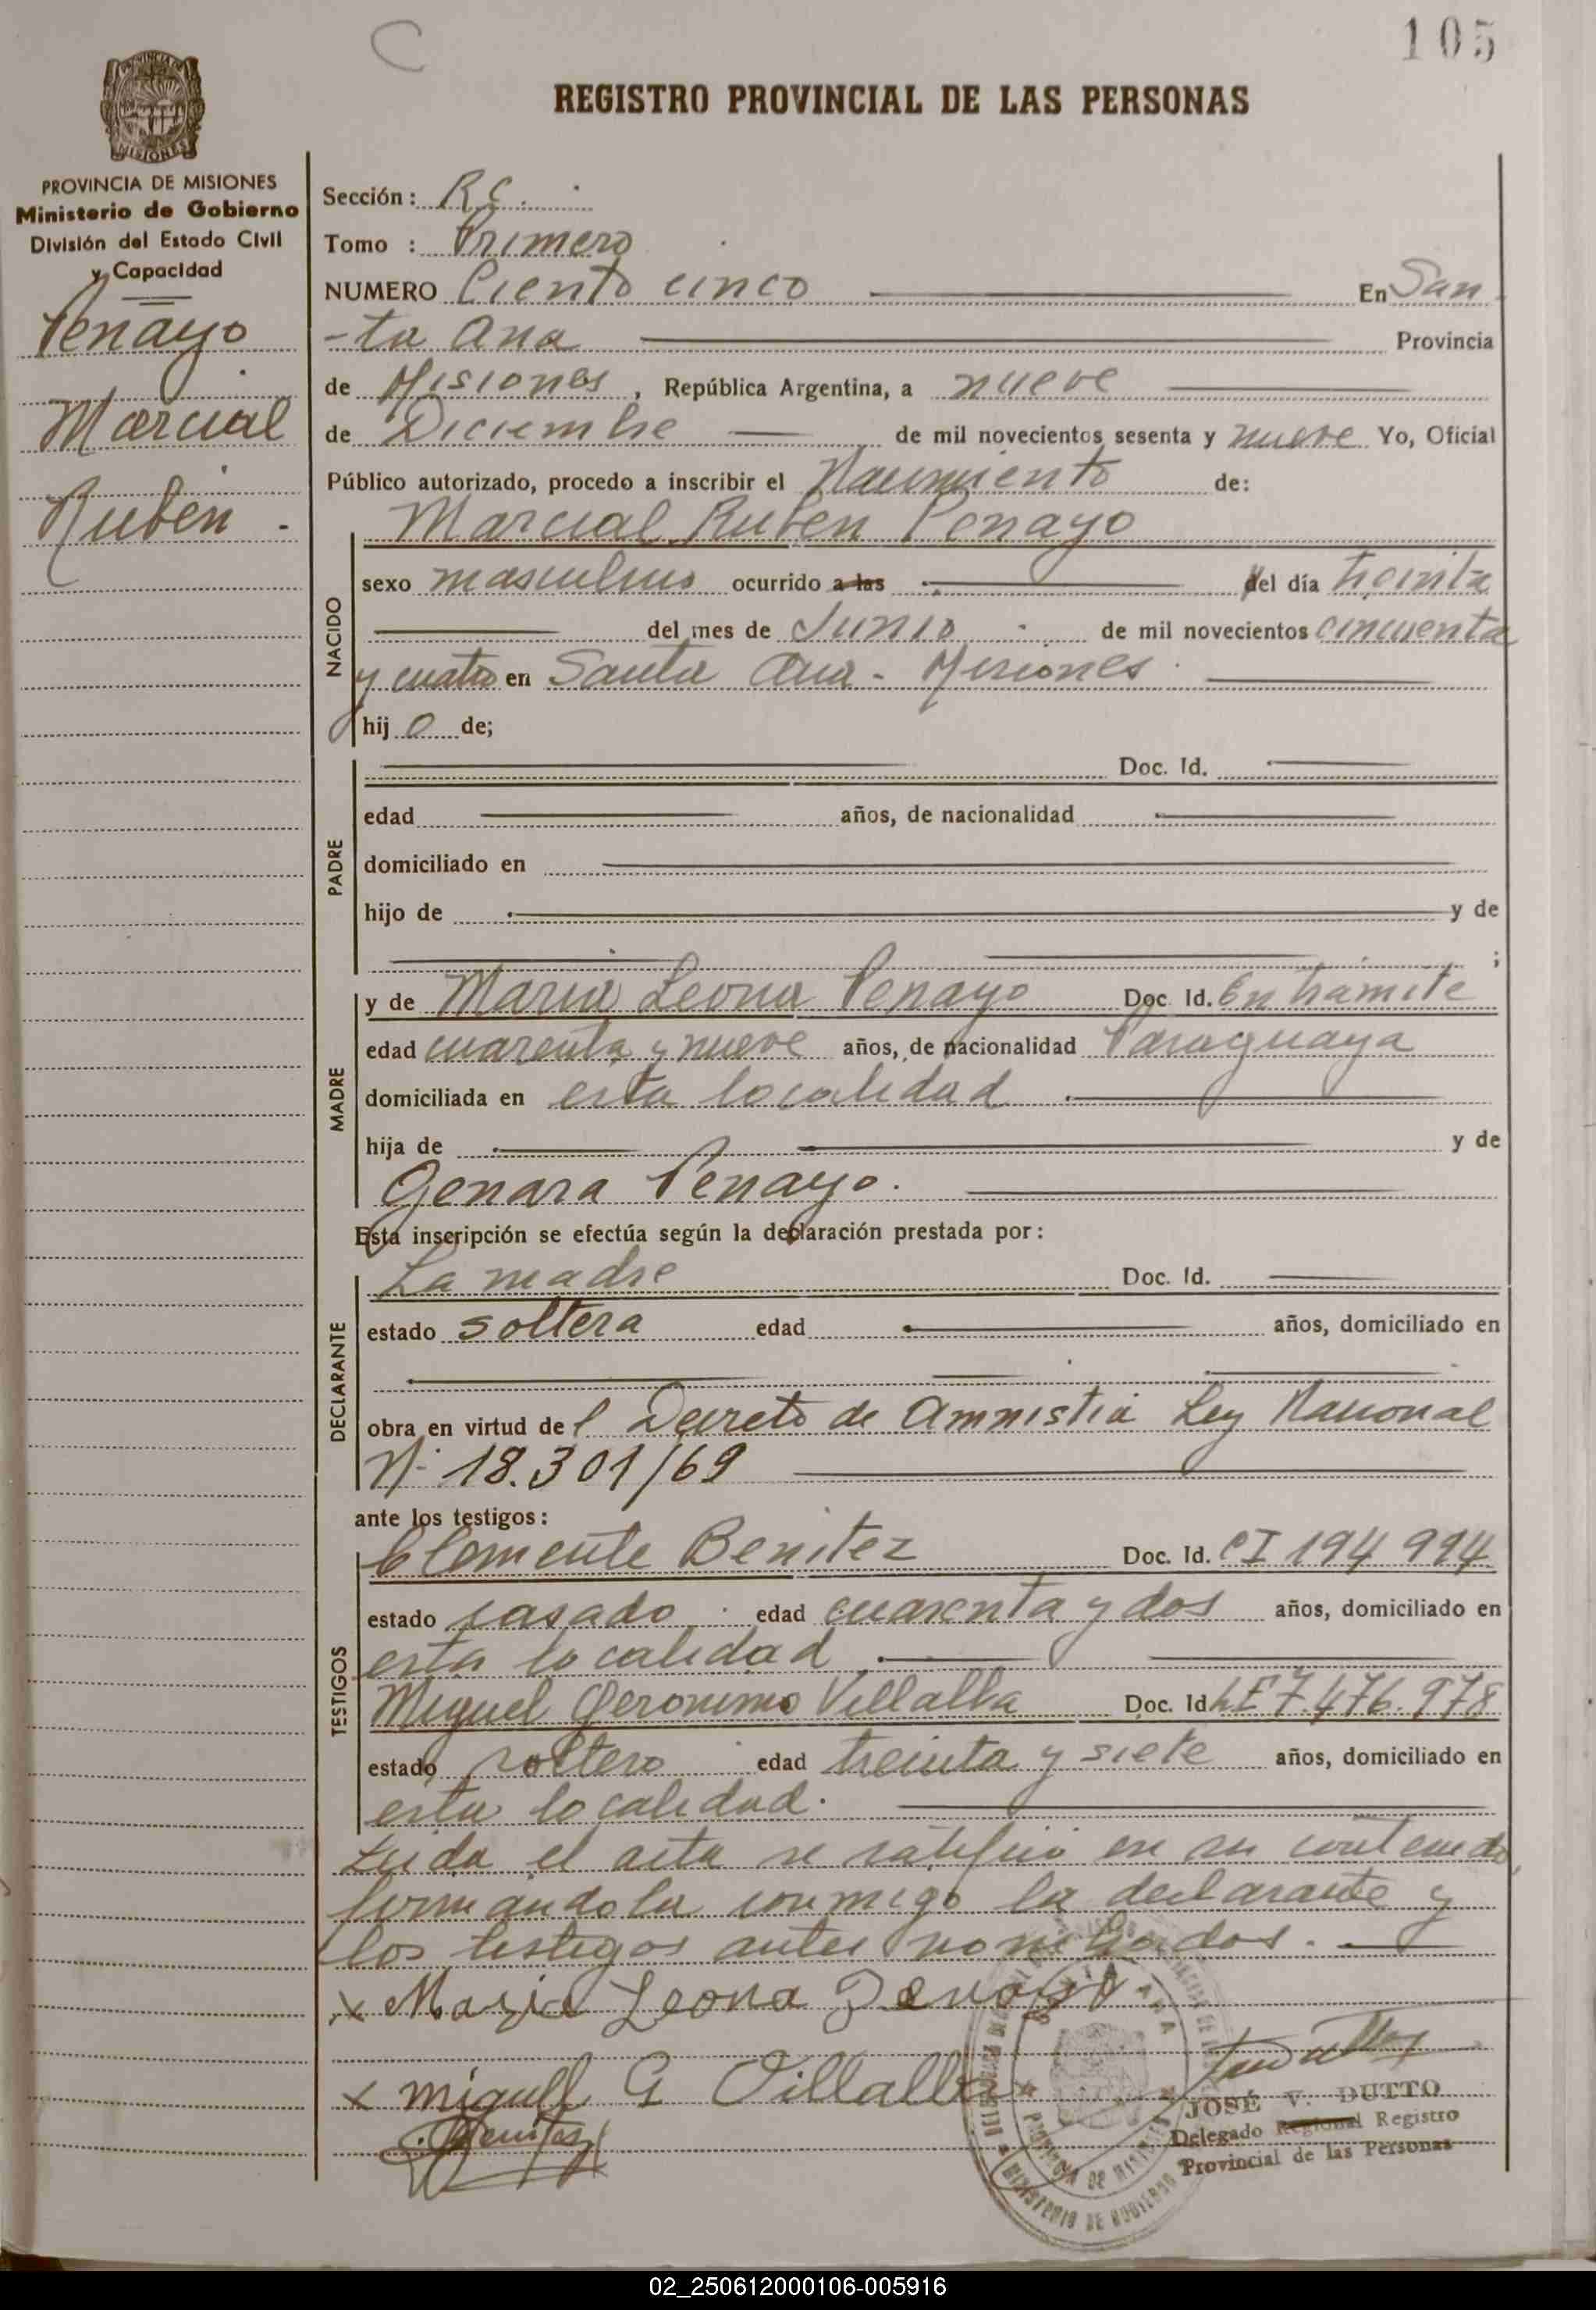 105
REGISTRO PROVINCIAL DE LAS PERSONAS
PROVINCIA DE MISIONES
Ministerio de Gobierno
División del Estado Civil
y Capacidad
Penayo
Marcial
Ruben.
Sección: R.C.
Tomo : Primero
NUMERO Ciento cinco En San
-ta Ana Provincia
de Misiones, República Argentina, a nueve
de Diciembre de mil novecientos sesenta y nueve Yo, Oficial
Público autorizado, procedo a inscribir el Nacimiento de:
Marcial Ruben Penayo
NACIDO
sexo masculino ocurrido a las del día treinta
del mes de Junio de mil novecientos cincuenta
y cuatro en Santa Ana - Misiones
hij o de;
PADRE
Doc. Id.
edad años, de nacionalidad
domiciliado en
hijo de y de
;
MADRE
y de Maria Leona Penayo Doc. Id. En tramite
edad cuarenta y nueve años, de nacionalidad Paraguaya
domiciliada en esta localidad
hija de y de
Genara Penayo.
Esta inscripción se efectúa según la declaración prestada por:
DECLARANTE
La madre Doc. Id.
estado soltera edad años, domiciliado en
obra en virtud de l Decreto de Amnistia Ley Nacional
N: 18.301/69
ante los testigos:
TESTIGOS
Clemente Benitez Doc. Id. CI 194 994
estado casado edad cuarenta y dos años, domiciliado en
esta localidad
Miguel Geronimo Villalba Doc. Id LE 7.476.978
estado soltero edad treinta y siete años, domiciliado en
esta localidad.
Leida el acta se ratifico en su contenido,
firmandola conmigo la declarante y
los testigos antes nombrados.
x Maria Leona Penayo
x miguel G Villalba
Benitez
JOSÉ V. DUTTO
Delegado Regional Registro
Provincial de las Personas
02_250612000106-005916